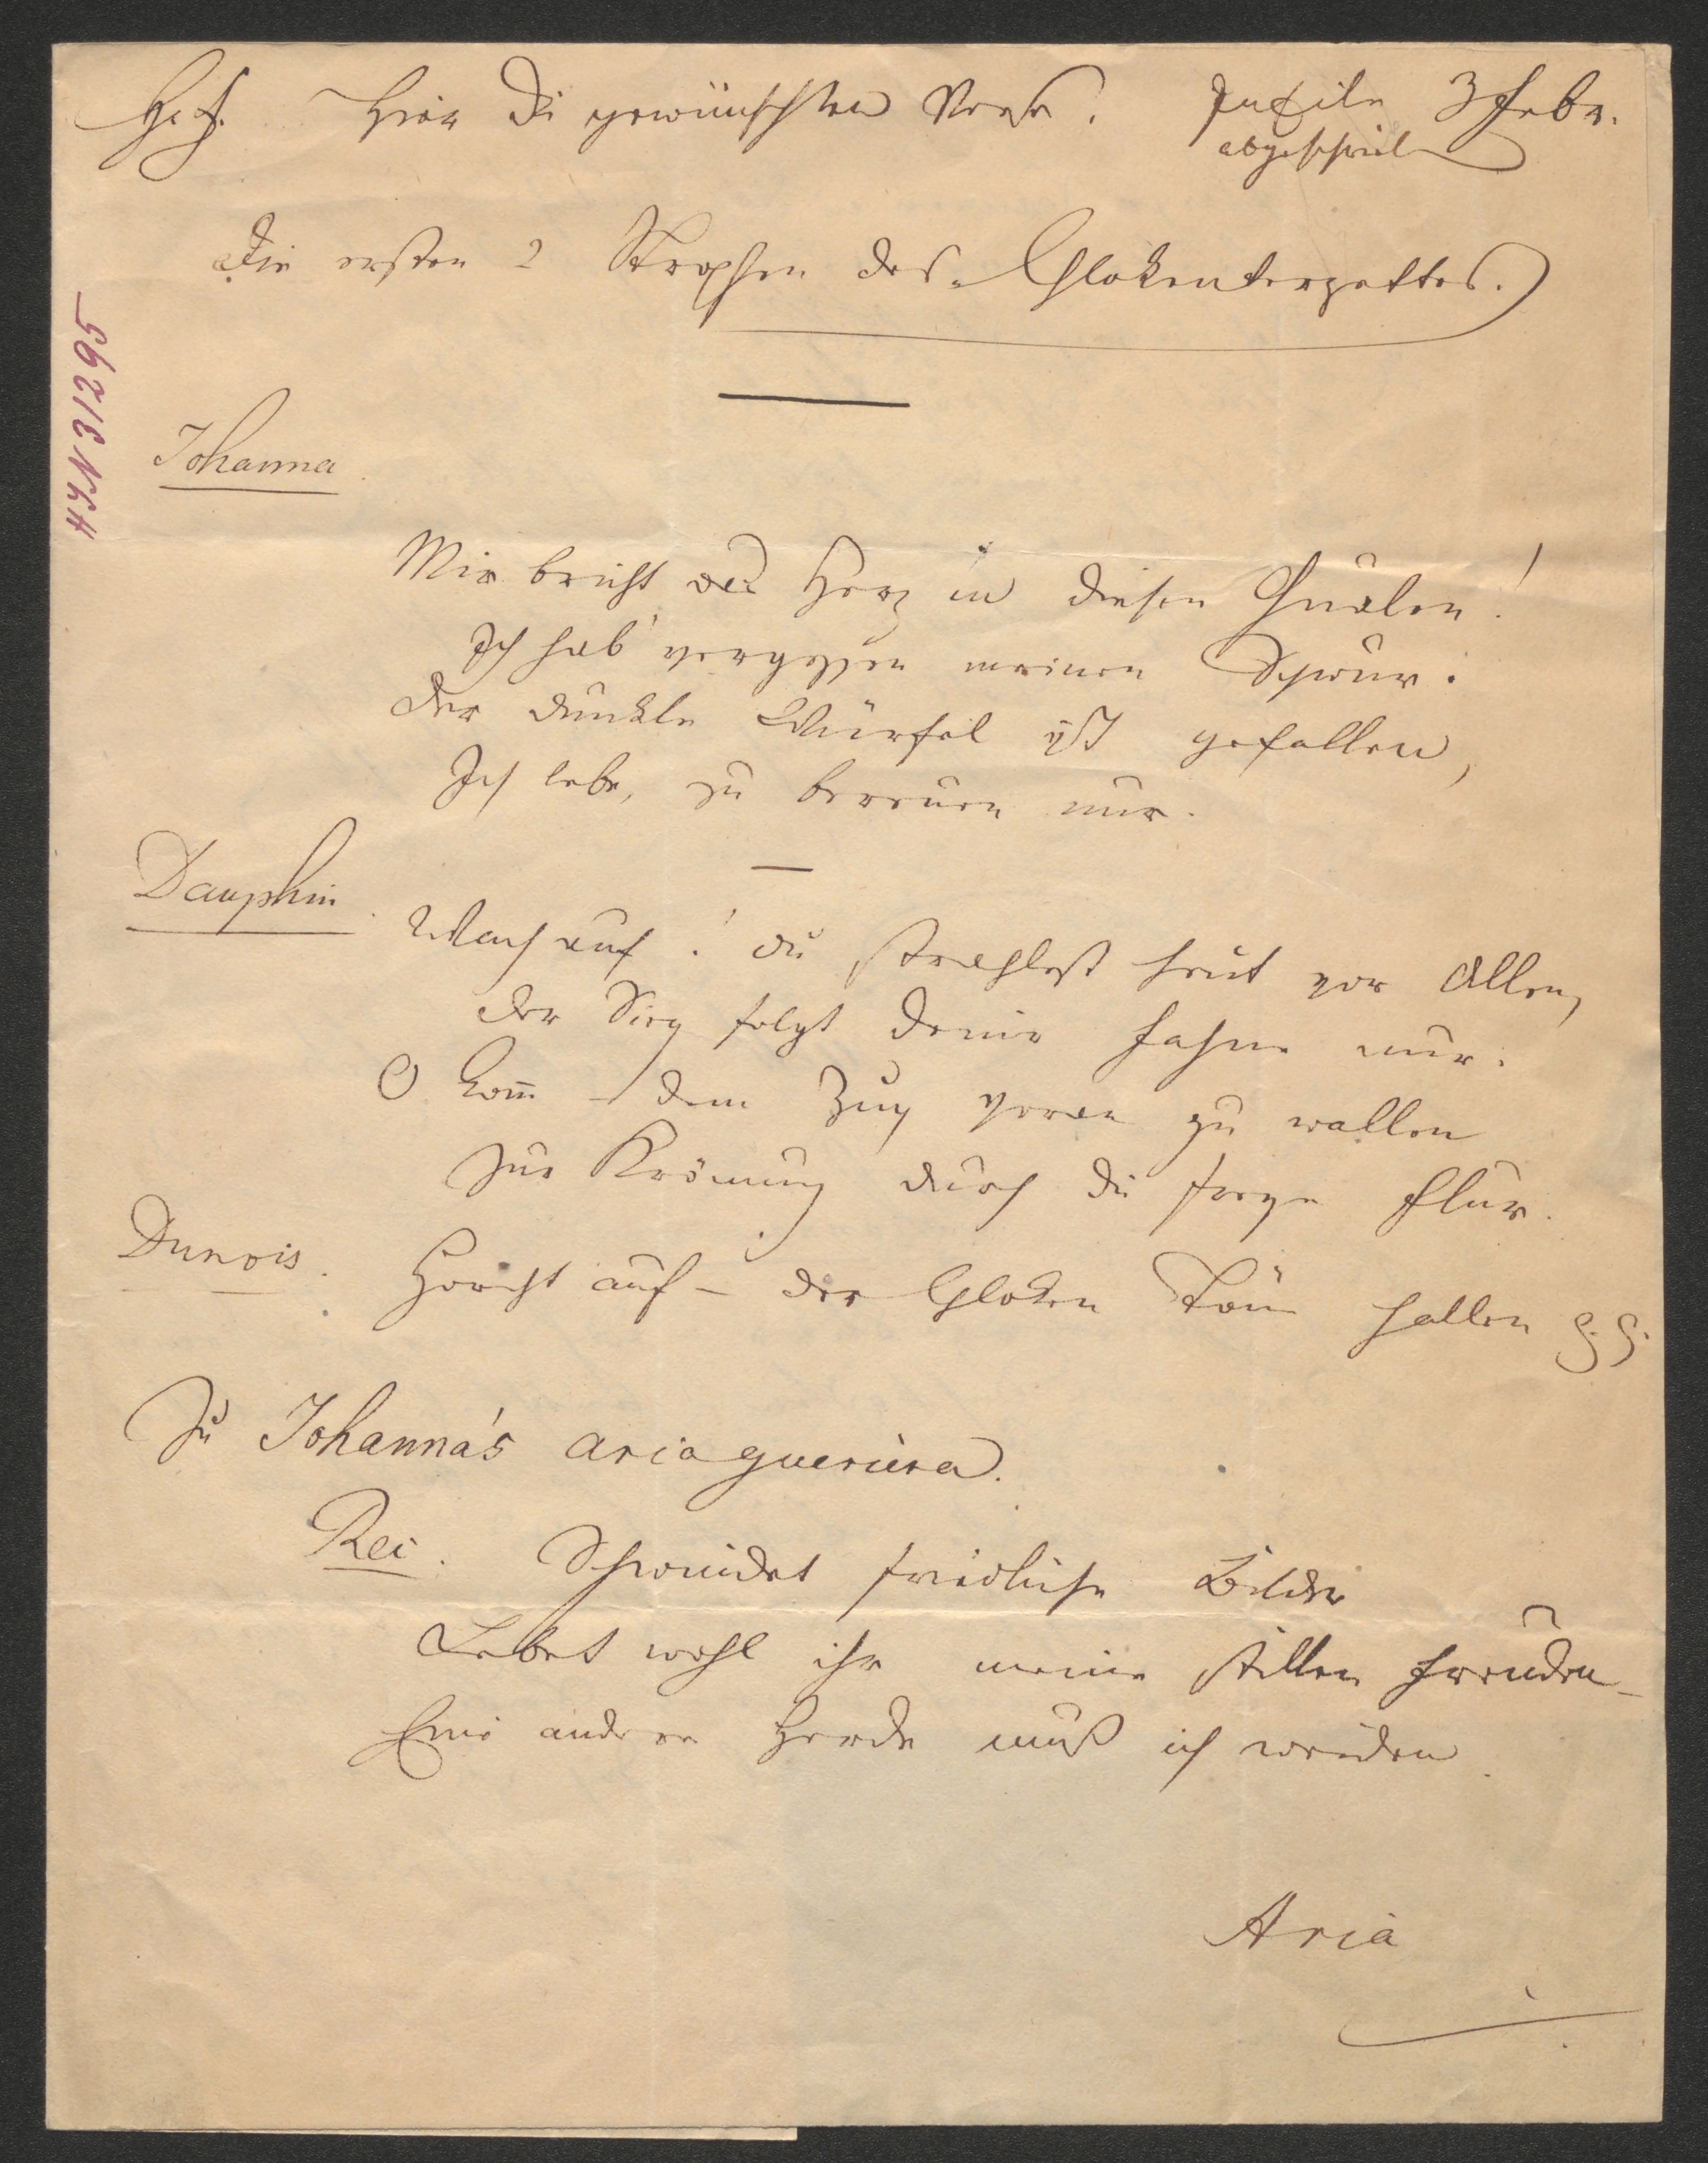 Hier die gewünschten Verse. In Eile 3 Febr.
abgeschickt
Die ersten 2 Strophen des Glokenterzettes.
HIN 31295
Johanna
Mir bricht das Herz in diesen Qualen!
Ich hab' vergessen meinen Schwur.
Der dunkle Würfel ist gefallen,
Ich lebe, zu bereuen nur.
Dauphin.
Wach auf! du strahlest heut vor Allen,
Der Sieg folgt deiner Fahne nur.
O kom̄ – dem Zug voran zu wallen
Zur Krönung durch die Flur.
Dunois. Horcht auf – der Gloken Töne hallen
Zu Johanna's aria gueriera.
Rec. Schwindet friedliche Bilder
Lebet wohl ihr meine stillen Freuden –
Eine andere Herde muß ich weiden.
Aria